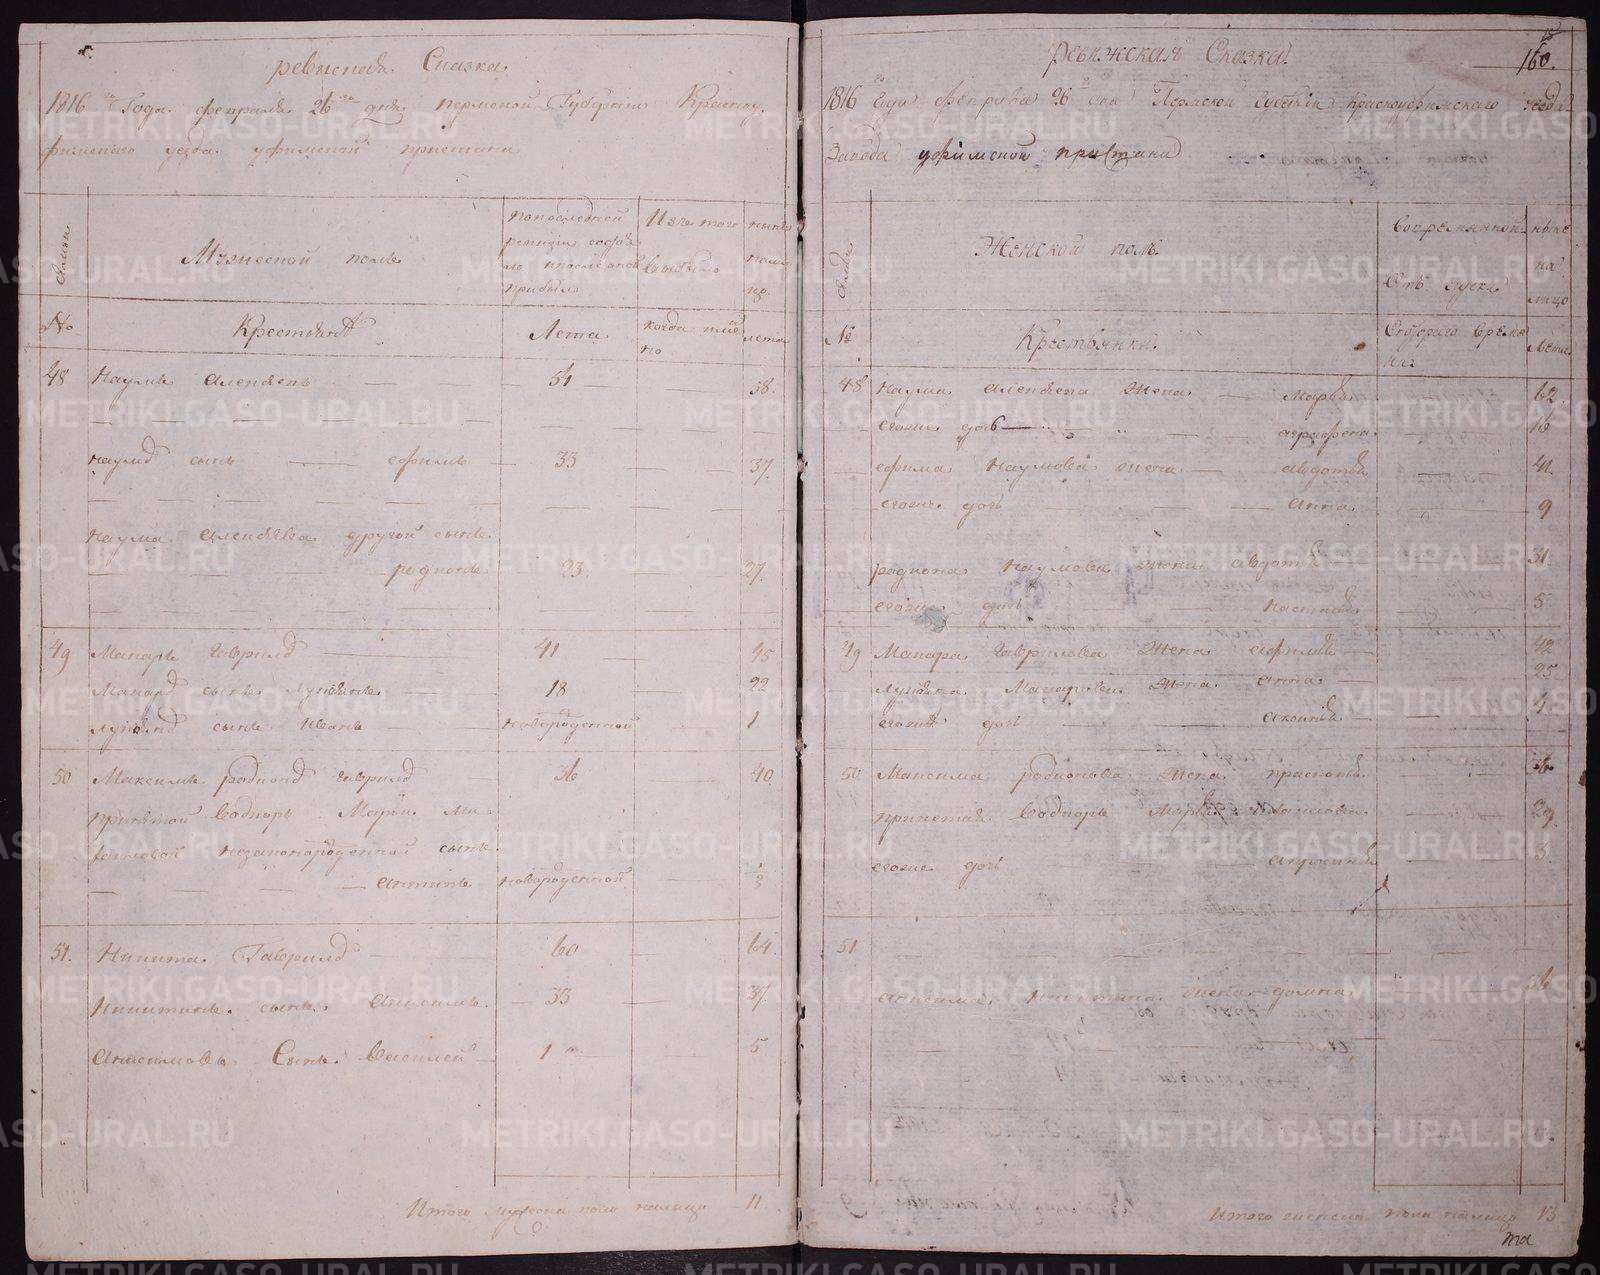 ревиская Сказка
1816 го Года февраля 26 го дня пермской Губернии Красноу
фимскаго уезда уфимской пристани
Семьи
Мужеской полъ
попоследней
ревизии состоя
ло и после оной
прибыло
Изъ того
выбыло
ныне
нали
цо
№
Крестьянѣ
Лета
когда имянно
лета
48 Наумъ алексеевъ 54 58
наумов сынъ ефимъ 33 37
наума алексеева другой сынъ
родионъ 23 27
49 Макаръ гаврилов 41 45
Макаров сынъ лукиянъ 18 22
лукиянов сынъ иванъ новорожденной 1
50 Максимъ родионов гаврилов 36 40
принятой Водворъ Марьи
незаконорожденной сынъ
антипъ новорожденной
51. Никита Гаврилов 60 64
Никитинъ сынъ Анисимъ 33 37
Анисимовъ Сынъ Василей 1 5
Итого мужеска пола налицо 11
ревижская Сказка
160.
1816 го Года февраля 26 го дня Пермской Губернии Красноуфимскаго уезда
Завода уфимской пристани
Семьи
Женской полъ
Вовремянной
Отлучке
ныне
на
лицо
№
Крестьянки
Скотораго времяни
лета
48 Наума алексеева жена Марья 62
егоже дочь аграфена 16
ефима Наумова жена авдотья 41
егоже дочь анна 9
родиона Наумова жена авдотья 31
егоже дочь настасья 5
49 Макара гаврилова жена афимья 42
лукияна Макарова жена анна 25
егоже дочь акулина 4
50 Максима родионова жена прасковья 36
принетая Водворъ Марья 29
егоже дочь акулина 3
51
анисима никитина жена домна 36
Итого женска пола налицо 13
та
METRIKI.GASO-URAL.RU